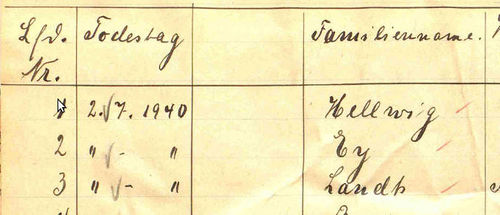 Lfd. Todestag Familienname.
Nr.
1 2. 7. 1940 Hellwig
2 " - " Ey
3 " - " Landt